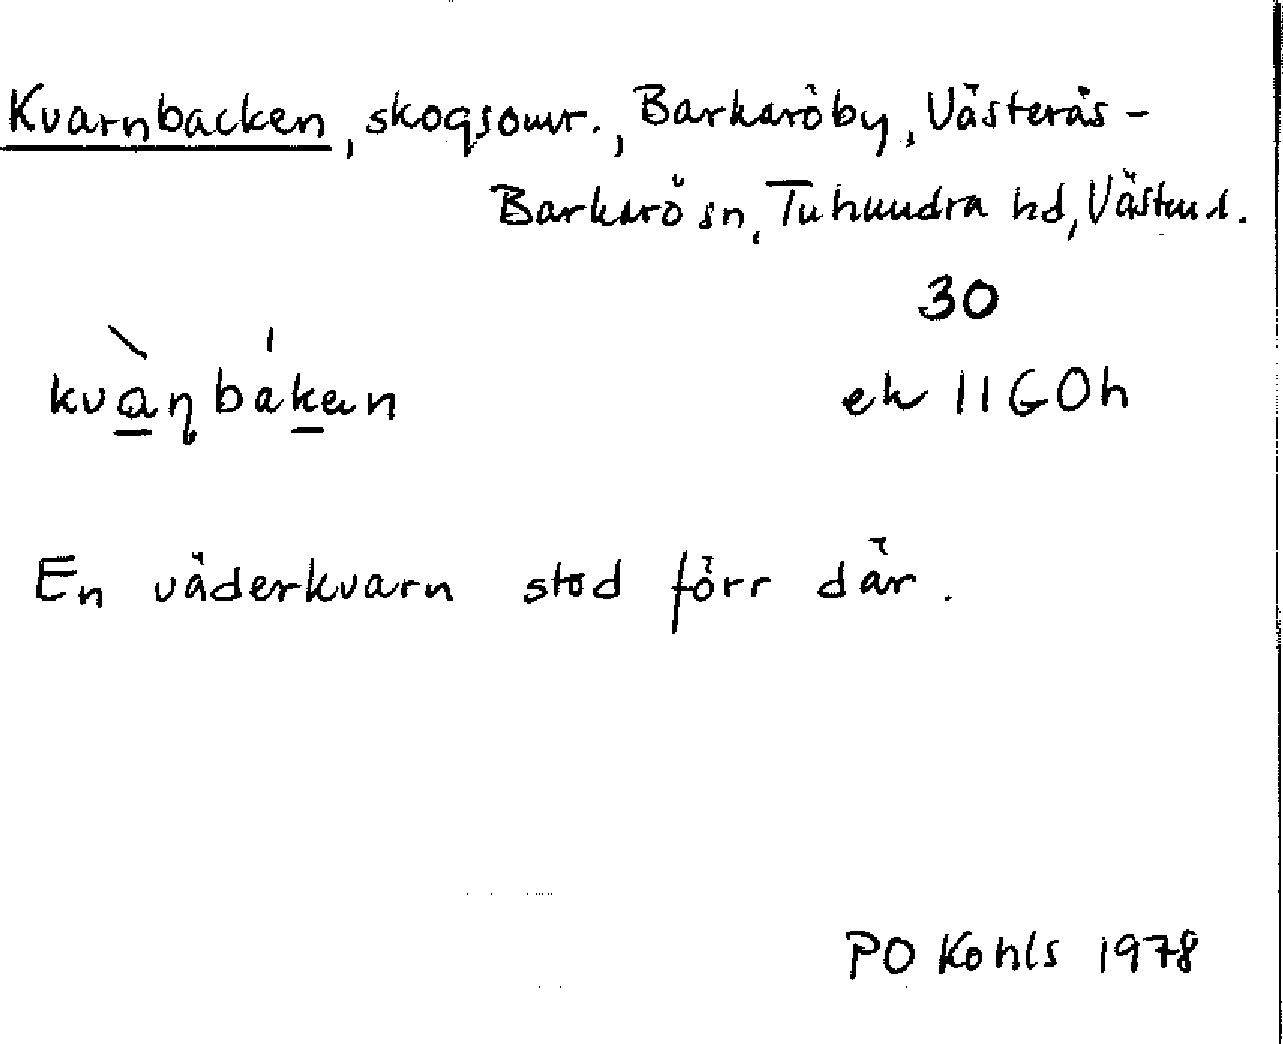 Kvarnbacken, skogsomr., Barkaröby, Västerås-
Barkarö sn, Tuhundra hd, Västml.
30
kvàɳbáken
ek 11G0h
En väderkvarn stod förr där.
PO Kohls 1978